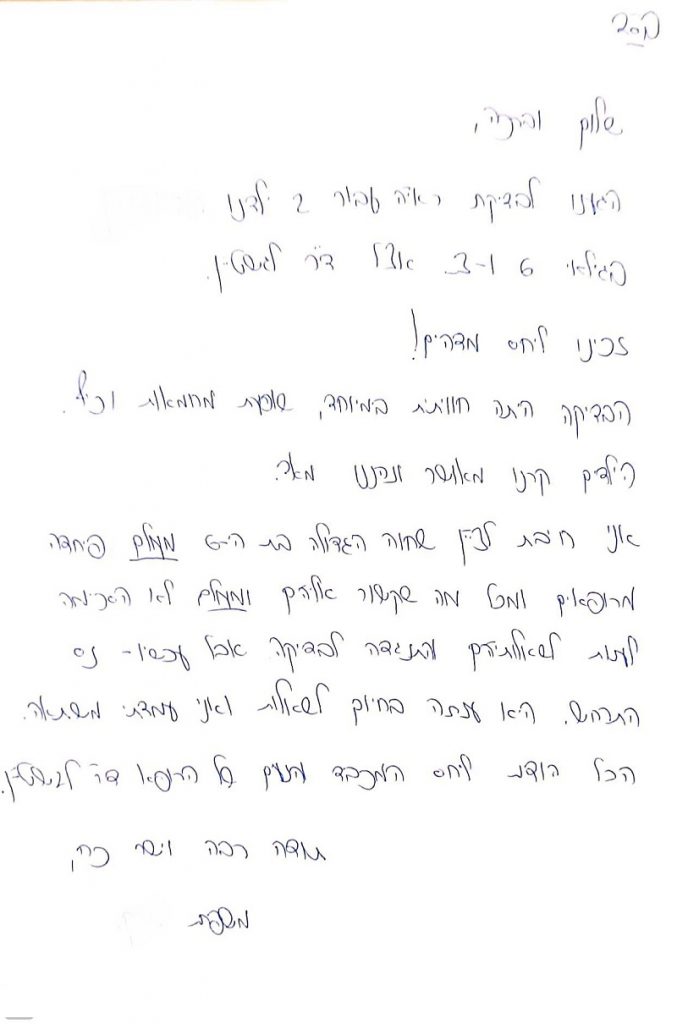 בס"ד
שלום וברכה,
הגענו לבדיקת ראיה עבור 2 ילדנו
בגילאי 6 ו-3. אצל ד"ר לנשטיין.
זכינו ליחס מדהים!
הבדיקה היתה חוויתית במיוחד, שופעת מחמאות וכיף.
הילדים קרנו מאושר ונהננו מאד.
אני חיבת לציין שחוה הגדולה בת ה-6 מעולם פיחדה
מרופאים ומכל מה שקשור אליהם ומעולם לא הסכימה
לענות לשאלותיהם והתנגדה לבדיקה. אבל עכשיו- נס
התרחש. היא ענתה בחיוך לשאלות ואני עמדתי משתאה.
הכל הודות ליחס המכבד והנעים של הרופא ד"ר לנשטיין.
תודה רבה ויישר כח,
משפחת